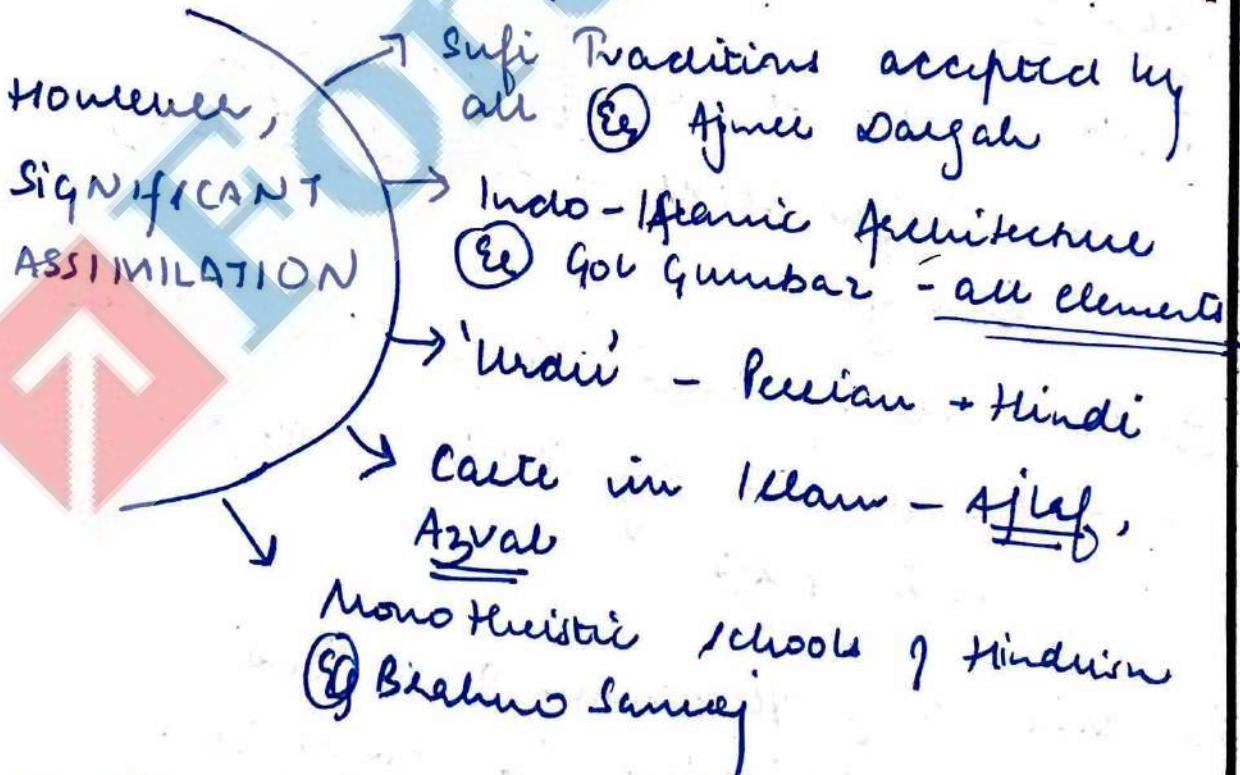 However,
SIGNIFICANT
ASSIMILATION
Sufi Traditions accepted by
all Eg Ajmer Dargah
Indo-Islamic Architecture
Eg Gol Gumbaz - all elements
'Urdu' - Persian + Hindi
Caste in Islam - Ajlaf,
Azval
Mono theistic schools of Hinduism
Eg Brahmo Samaj
For